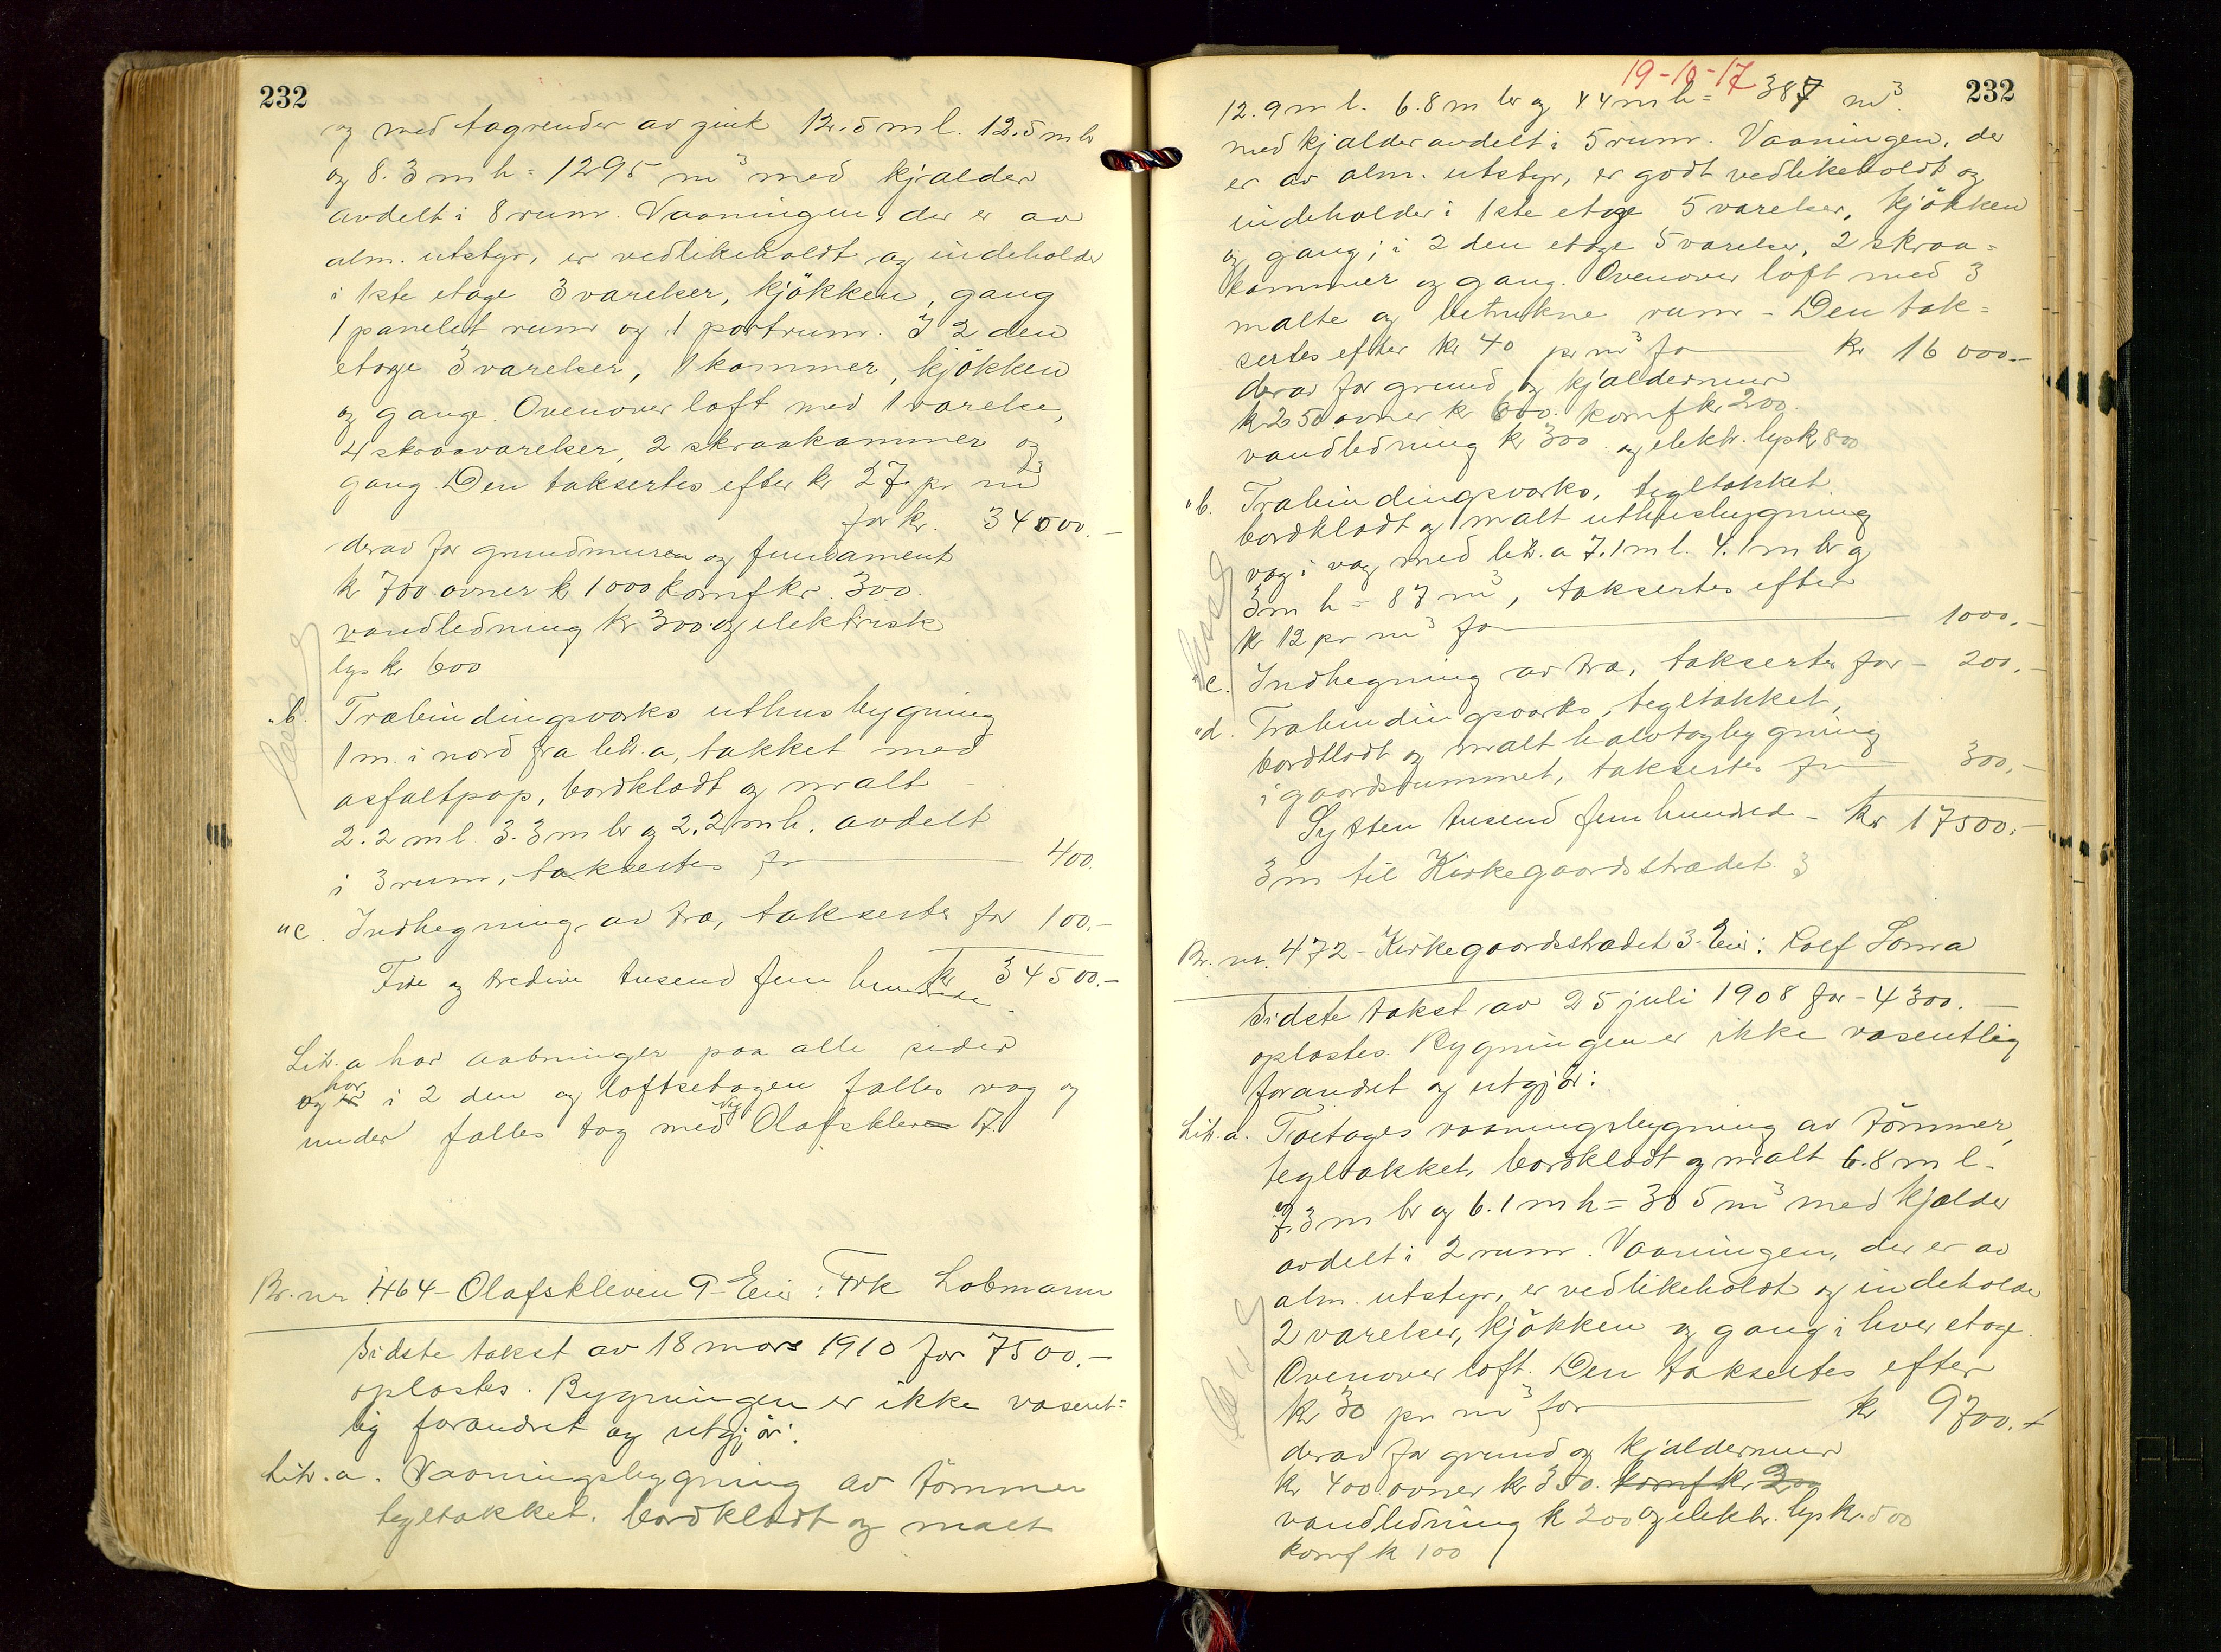 232
og med tagrender av zink 12.5 m l. 12.5 m br
og 8.3 m h = 1295 m³ med kjælder
avdelt i 8 rum. Vaaningen, der er av
alm. utstyr, er vedlikeholdt og indeholder
i 1ste etage 3 værelser, kjökken, gang
1 panelet rum og 1 portrum. I 2 den
etage 3 værelser, 1 kammer, kjökken
og gange. Ovenover loft med 1 værelse,
4 skraaværelser, 2 skraakammer og
gang. Den taksertes efter kr 27. pr m³
for kr. 34000.–
derav for grundmuren og fundament
kr 700 ovner kr 1000 komf kr. 300.
vandledning kr 300. og elektrisk
lys kr 600
"b. Træbindingsverks uthusbygning
1 m. i nord fra litr. a, tækket med
asfaltpap, bordklædt og malt –
2.2 m l. 3.3 m br og 2.2 m h. avdelt
i 3 rum, taksertes for 400.
"c. Indhegning av træ, taksertes for 100.–
Fire og tredive tusend fem hundrede kr 34500.–
Litr. a har aabninger paa alle sider
og har i 2 den og loftsetagen fælles væg og
under fælles tag med No Olafskleven 17.
Br. nr. 464 – Olafskleven 9 – Eier: Frk Lobmann
Sidste takst av 18 mars 1910 for 7500.–
oplæstes. Bygningen er ikke væsent=
lig forandret og utgjør:
Litr. a. Vaaningsbygning av tömmer
tegltækket, bordklædt og malt
19-10-17
232
12.9 m l. 6.8 m br og 4.4 m h = 387 m³.
med kjælder avdelt i 5 rum. Vaaningen, der
er av alm. utstyr, er godt vedlikeholdt og
indeholder i 1ste etage 5 værelser, kjökken
og gang; i 2 den etage 5 værelser, 2 skraa=
kammer og gang. Ovenover loft med 3
malte og betrukne rum – Den tak=
sertes efter kr 40 pr m³ for kr 16000.–
derav for grund og kjældermur
kr 250 ovner kr 600. komf kr 200.
vandledning kr 300. og elektr. lys kr 800
"b. Træbindingsverks, tegltækket
bordklædt og malt uthusbygning
væg i væg med litr. a 7.1 m l. 4.1 m br og
3 m h = 87 m³, taksertes efter
kr 12 pr m³ for 1000.–
"c. Indhegning av træ, taksertes for – 200.–
"d. Træbindingsverks, tegltækket,
bordklædt og malt halvtagbygning
i gaardsrummet, taksertes for 300.–
Sytten tusend fem hundrede – kr 17500.–
3 m til Kirkegaardsstrædet 3
Br. nr. 472 – Kirkegaardsstrædet 3. Eier: Rolf Soma
Sidste takst av 25 juli 1908 for – 4300.–
oplæstes. Bygningen er ikke væsentlig
forandret og utgjør:
Litr. a. Toetages vaaningsbygning av tömmer,
tegltækket, bordklædt og malt 6.8 m l.
7.3 m br og 6.1 m h = 305 m³ med kjælder
avdelt i 2 rum. Vaaningen, der er av
alm. utstyr, er vedlikeholdt og indeholder
2 værelser, kjökken og gang i hver etage.
Ovenover loft. Den taksertes efter
kr 30 pr m³ for kr 9700.–
derav for grund og kjældermur
kr 400. ovner kr 350. komf kr 200
vandledning kr 200. og elektr. lys kr. 500
komf kr 100